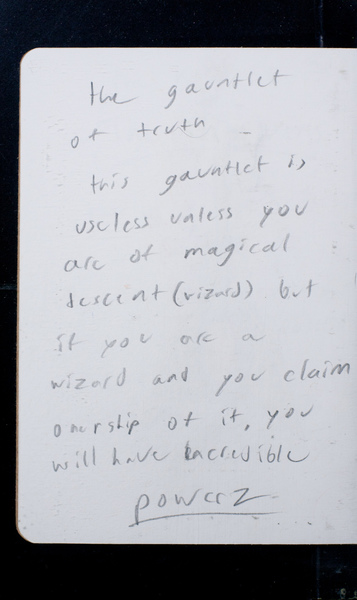 the gauntlet
of truth
this gauntlet is
useless unless you
are of magical
descent (wizard) but
if you are a
wizard and you claim
onership of it, you
will have incredible
powerz